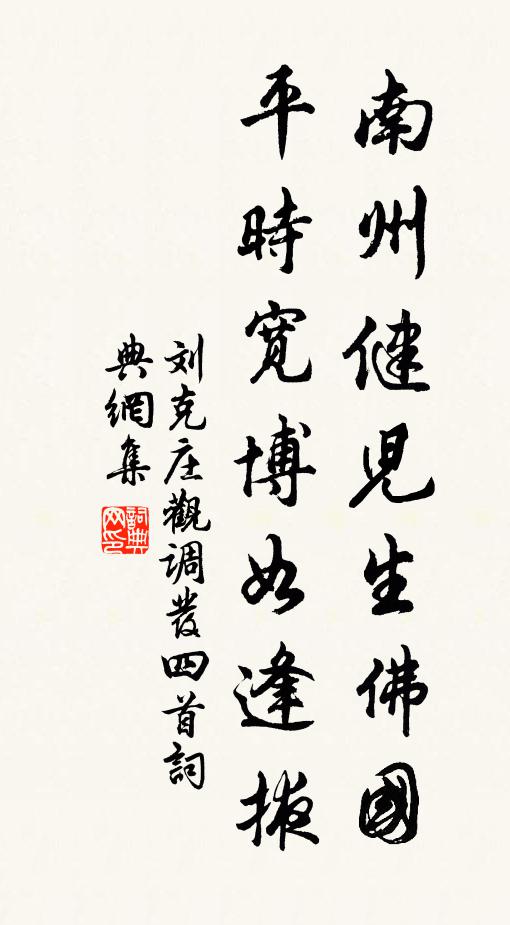 南州健児生佛國
平時寬博如逢掖
刘克庄觀調發四首詞
典網集
詞典
网印